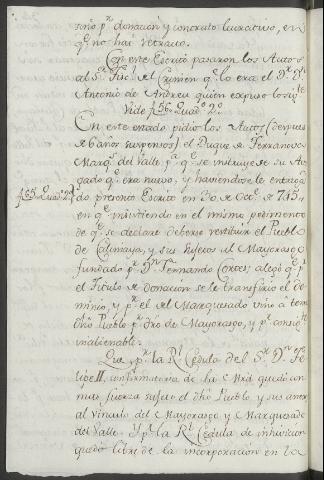 sono pr. donacion y contrato lucrativo, en
qe. no hai retracto.
Con este Escrito pasaron los Autos
al Sr. Fiscl. del Crimen qe. lo era el Dr. Dn.
Antonio de Andreu quien expuso lo sigte.
Vide f. 56. Quadno. 2o.
En este estado pidio los Autos (despues
de 6 años suspensos) el Duque de Terranova
Marqs. del Valle pa. qe. se instruyese su Abo
gado qe. era nuevo, y haviendosele entrega
f. 65. Quadno. 2o. do presentó Escrito en 30 de Octe. de 745,
en qe. insistiendo en el mismo pedimento
de qe. se declare deberse restituir el Pueblo
de Calimaya, y sus sujetos al Mayorazgo
fundado pr. Dn. Fernando Cortes; alegó qe. pr.
el Titulo de donacion se le transfirio el do
minio, y pr. el del Marquesado vino a tener
dho Pueblo pr. dro de Mayorasgo, y pr. consigte.
inalienable.
Que pr. la Rl. Cedula del Sr. Dn. Fe
lipe II. confirmatoria de la Mrd. quedó con
mas fuerza sujeto el dho Pueblo y sus anexos
al vinculo del Mayorazgo y Marquesado
del Valle. Y pr. la Rl. Cedula de inhivicion
quedó libre de la incorporacion en la